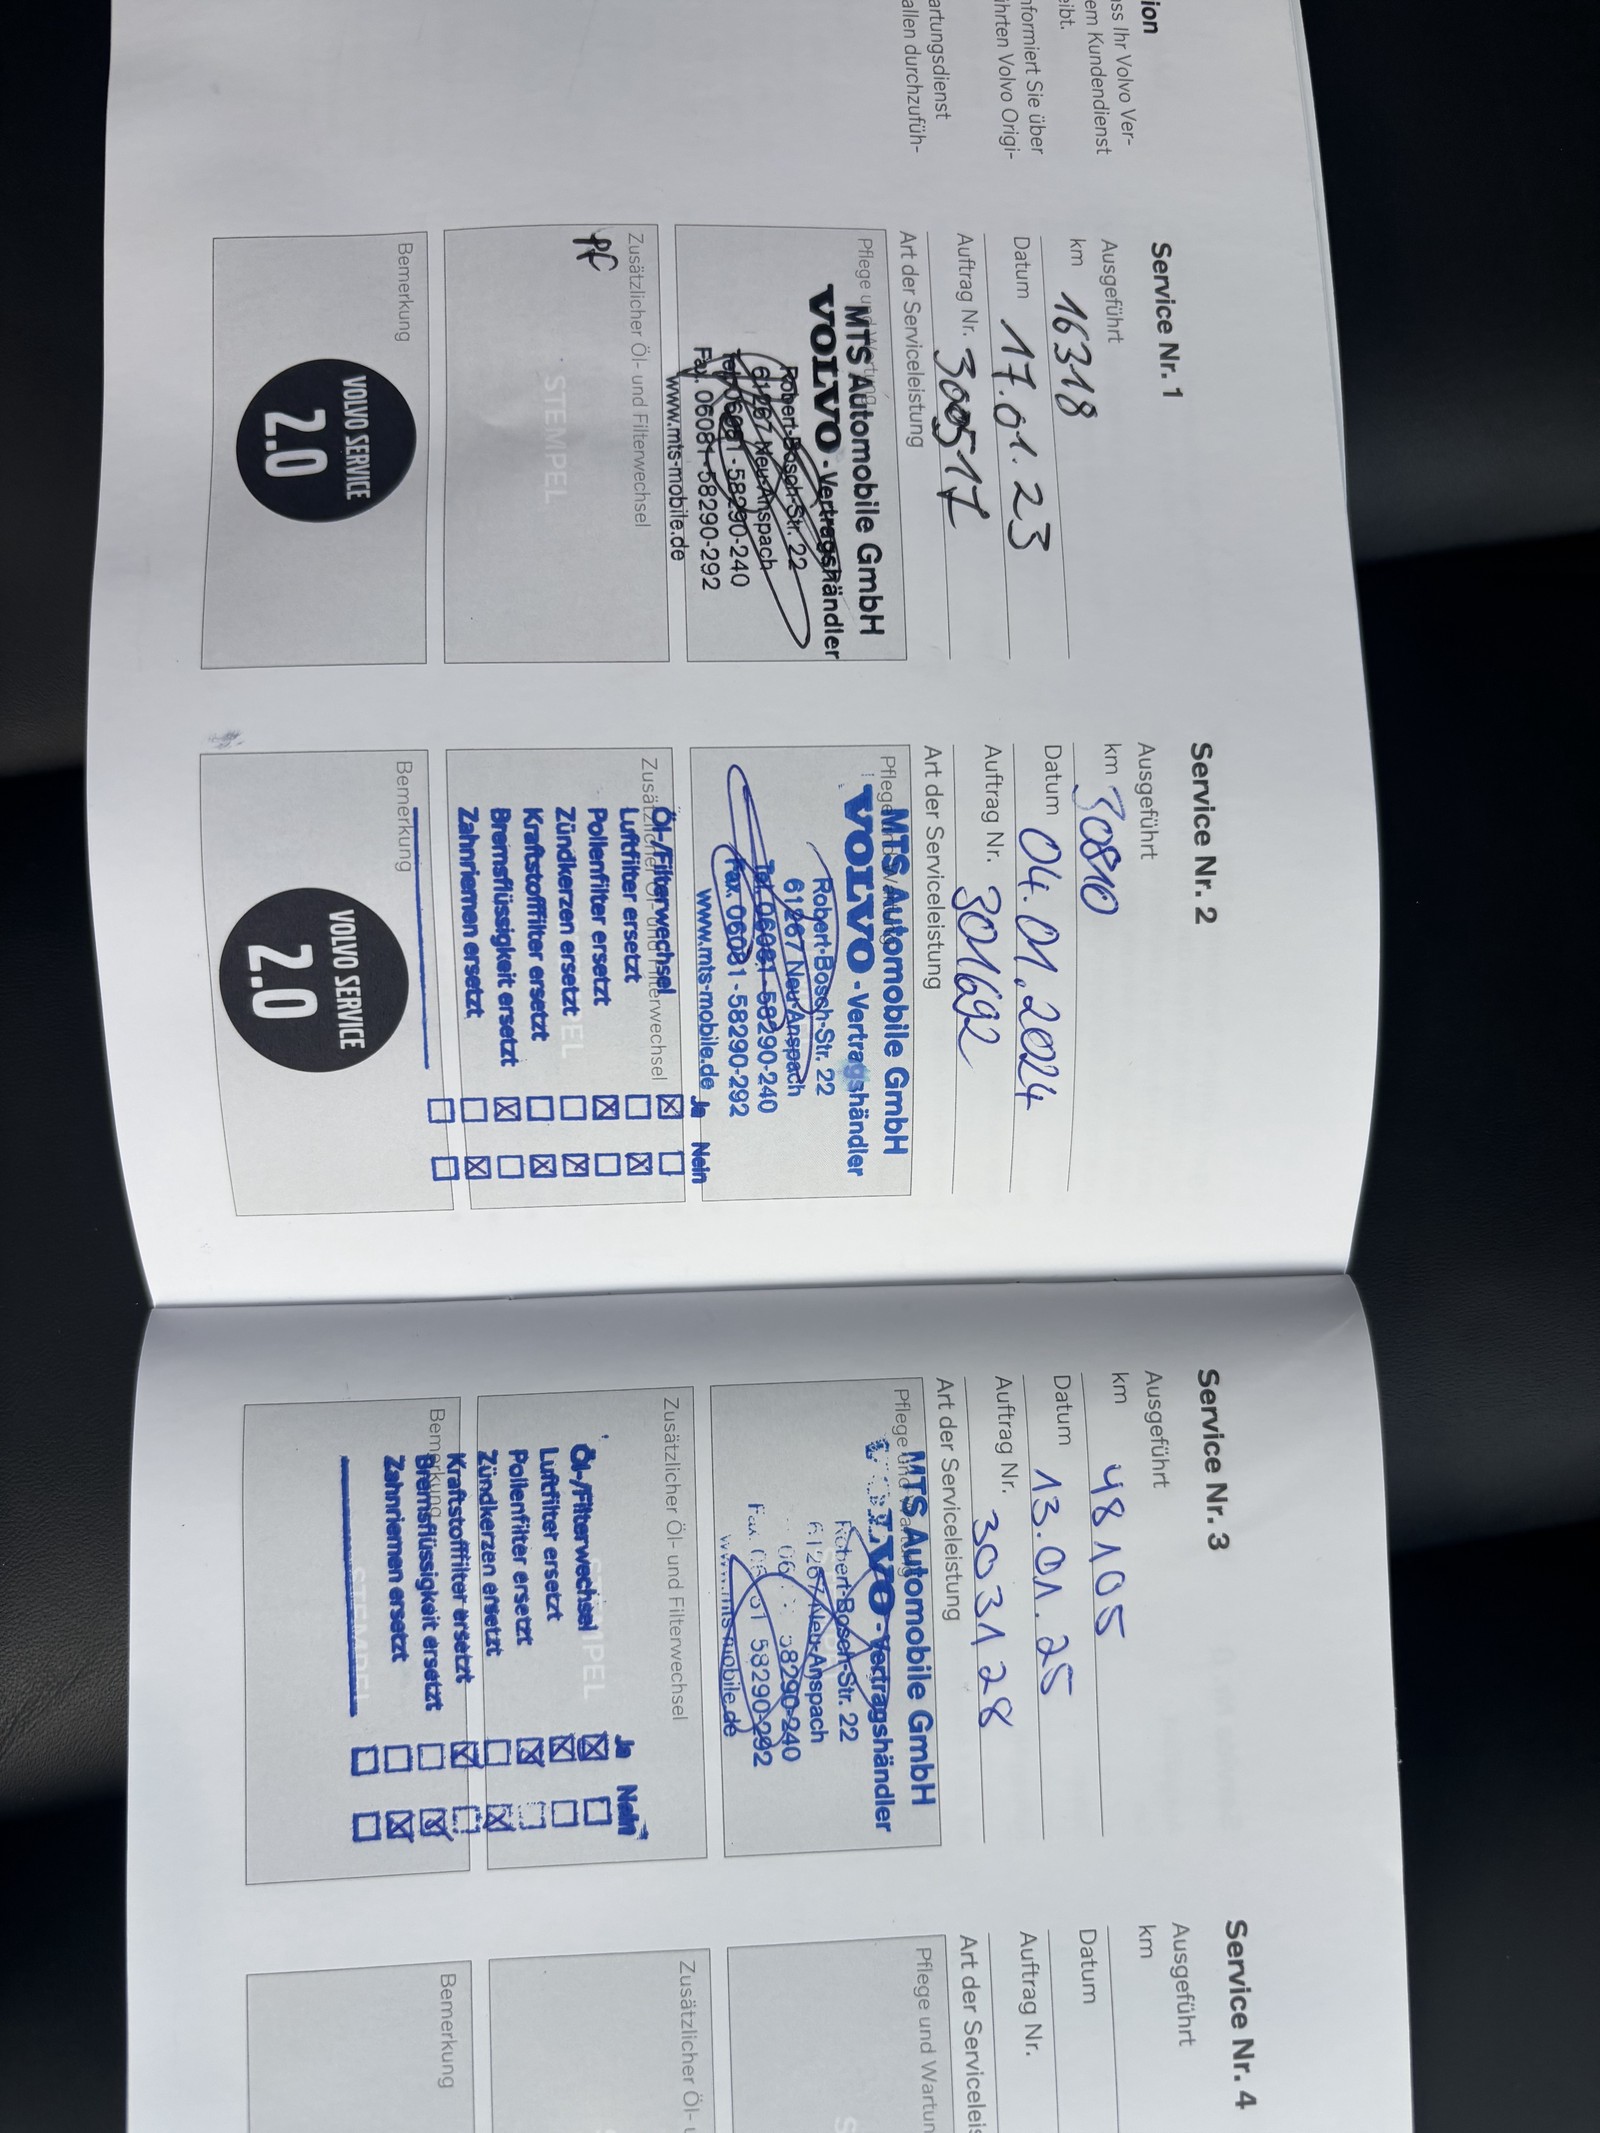 ion
ss Ihr Volvo Ver-
em Kundendienst
eibt.
nformiert Sie über
ihrten Volvo Origi-
artungsdienst
allen durchzufüh-
Service Nr. 1
Ausgeführt
km 16318
Datum 17.01.23
Auftrag Nr. 300517
Art der Serviceleistung
Pflege und Wartung
MTS Automobile GmbH
VOLVO - Vertragshändler
Robert-Bosch-Str. 22
61267 Neu-Anspach
Tel. 06081 - 58290-240
Fax. 06081-58290-292
www.mts-mobile.de
Zusätzlicher Öl- und Filterwechsel
STEMPEL
Bemerkung
VOLVO SERVICE
2.0
Service Nr. 2
Ausgeführt
km 30810
Datum 04.01.2024
Auftrag Nr. 301692
Art der Serviceleistung
Pflege und Wartung
MTS Automobile GmbH
VOLVO - Vertragshändler
Robert-Bosch-Str. 22
61267 Neu-Anspach
Tel. 06081 - 58290-240
Fax. 06081 - 58290-292
www.mts-mobile.de
Ja Nein
Zusätzlicher Öl- und Filterwechsel
Öl-/Filterwechsel ☒ ☐
Luftfilter ersetzt ☐ ☒
Pollenfilter ersetzt ☒ ☐
Zündkerzen ersetzt ☐ ☒
Kraftstofffilter ersetzt ☐ ☒
Bremsflüssigkeit ersetzt ☒ ☐
Zahnriemen ersetzt ☐ ☒
☐ ☐
Bemerkung
VOLVO SERVICE
2.0
Service Nr. 3
Ausgeführt
km 48105
Datum 13.01.25
Auftrag Nr. 303128
Art der Serviceleistung
Pflege und Wartung
MTS Automobile GmbH
VOLVO - Vertragshändler
Robert-Bosch-Str. 22
61267 Neu-Anspach
58290-240
Fax. 58290-292
www.mts-mobile.de
Zusätzlicher Öl- und Filterwechsel
Ja Nein
Öl-/Filterwechsel ☒ ☐
Luftfilter ersetzt ☒ ☐
Pollenfilter ersetzt ☒ ☐
Zündkerzen ersetzt ☐ ☒
Kraftstofffilter ersetzt ☒ ☐
Bemerkung
Bremsflüssigkeit ersetzt ☐ ☒
Zahnriemen ersetzt ☐ ☒
☐ ☐
STEMPEL
Service Nr. 4
Ausgeführt
km
Datum
Auftrag Nr.
Art der Serviceleis
Pflege und Wartun
Zusätzlicher Öl- u
Bemerkung